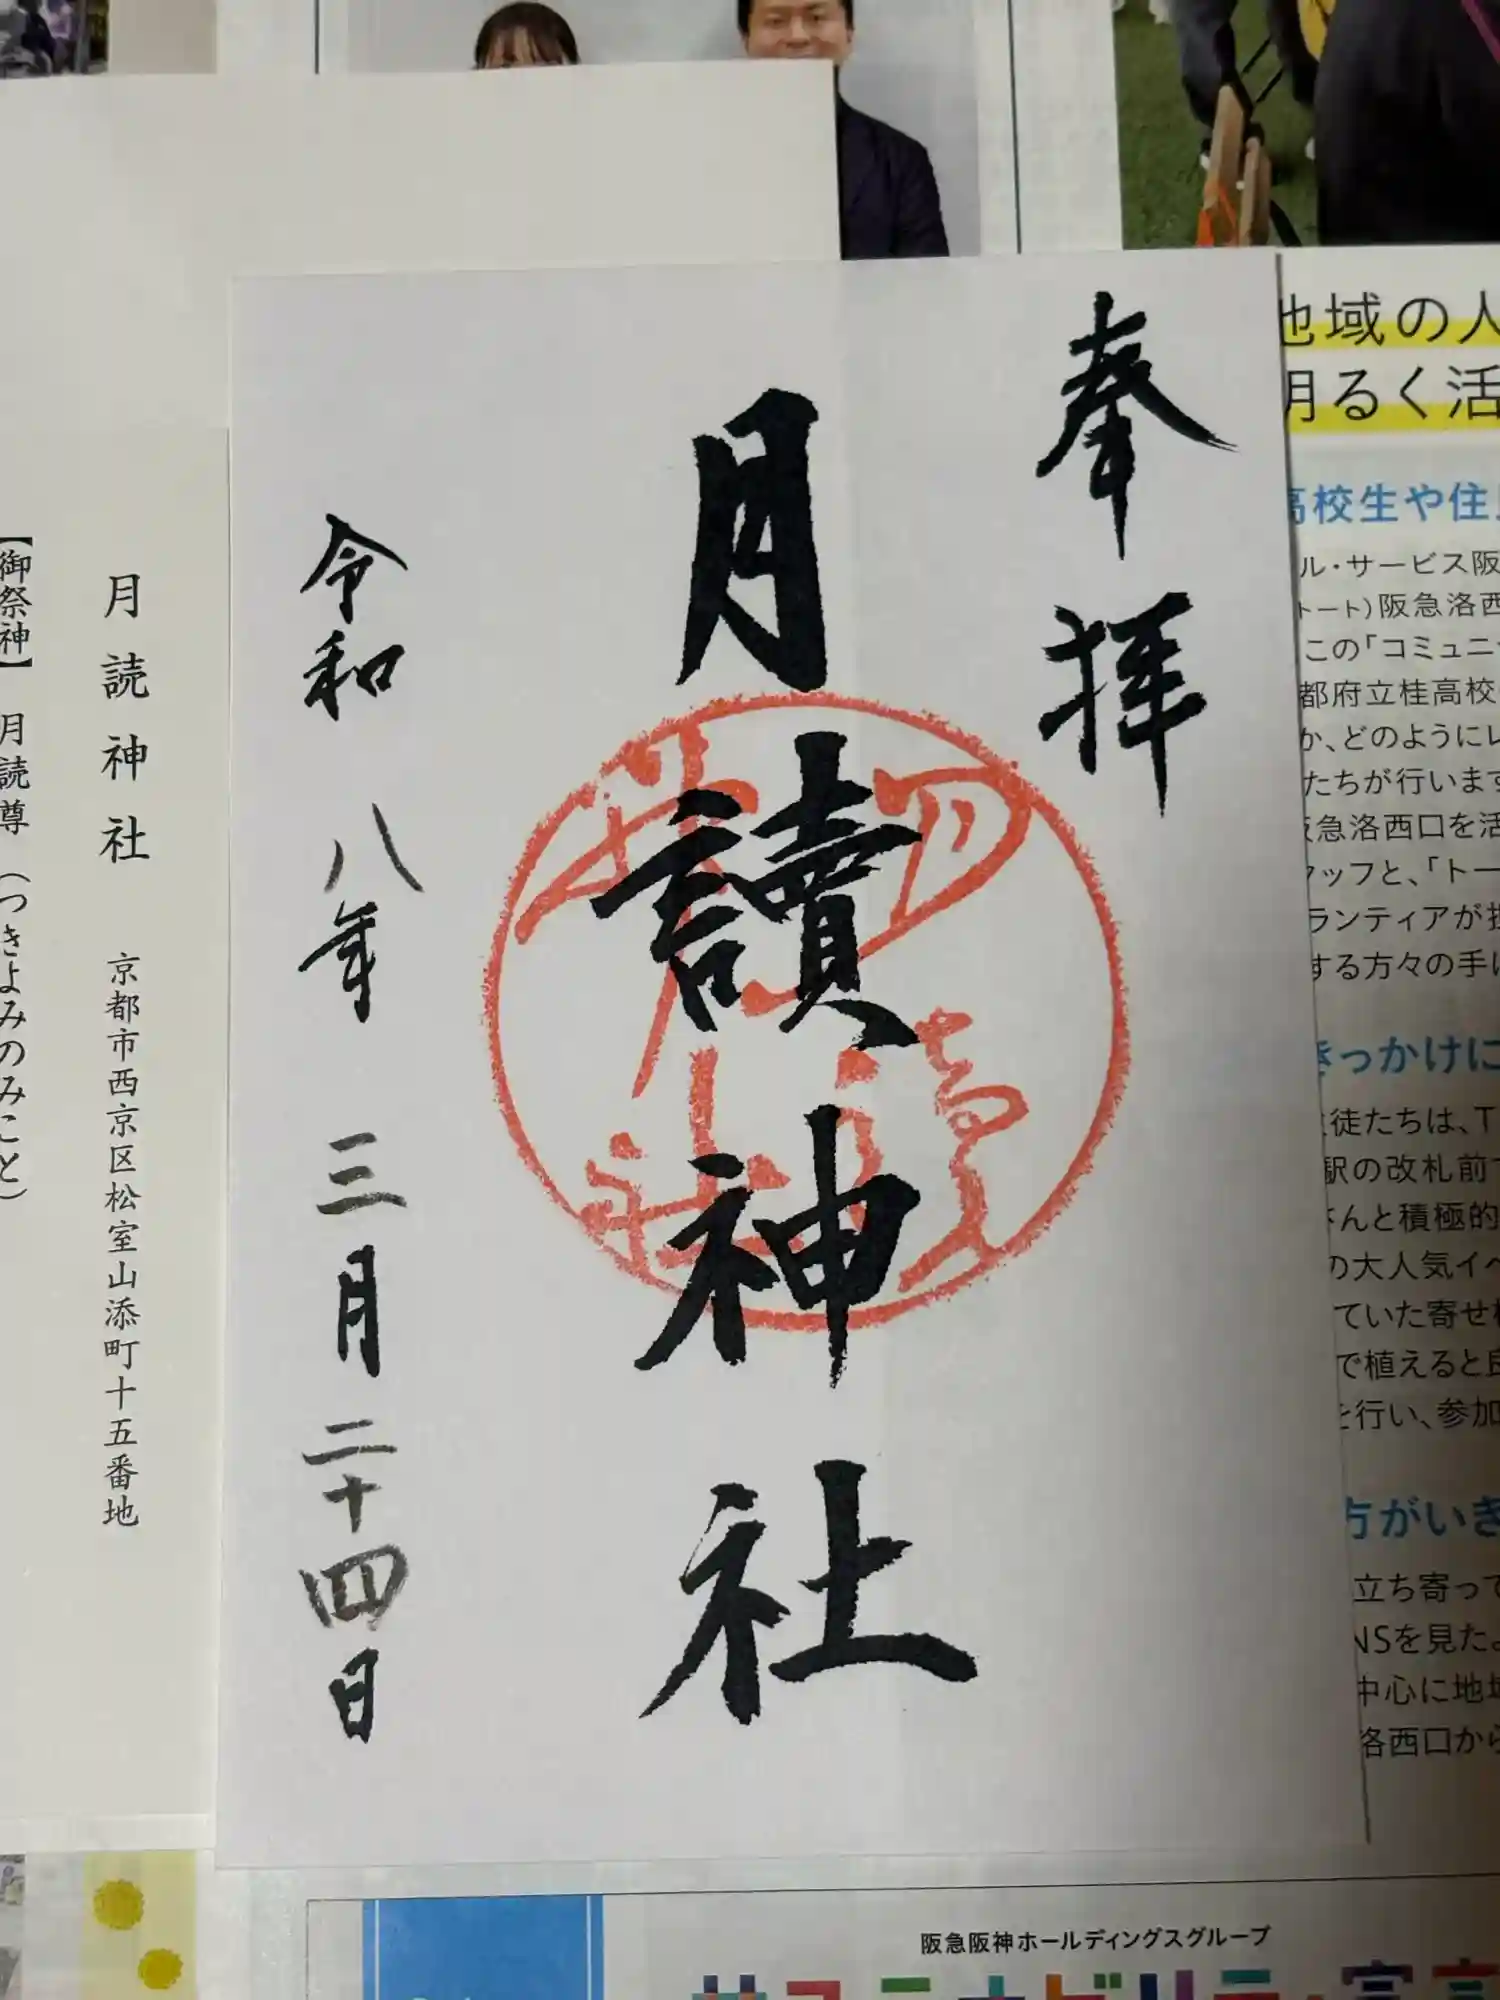 奉拝
月讀神社
令和八年三月二十四日
月読神社 京都市西京区松室山添町十五番地
【御祭神】月読尊(つきよみのみこと)
地域の人
明るく活
高校生や住
ル・サービス阪
トート)阪急洛西
この「コミュニ
都府立桂高校
か、どのようにレ
たちが行います
阪急洛西口を活
タッフと、「トー
ランティアが
する方々の手に
きっかけに
徒たちは、T
駅の改札前
さんと積極的
の大人気イベ
ていた寄せ
で植えると
を行い、参加
方がいき
立ち寄って
NSを見た
中心に地域
洛西口から
阪急阪神ホールディングスグループ